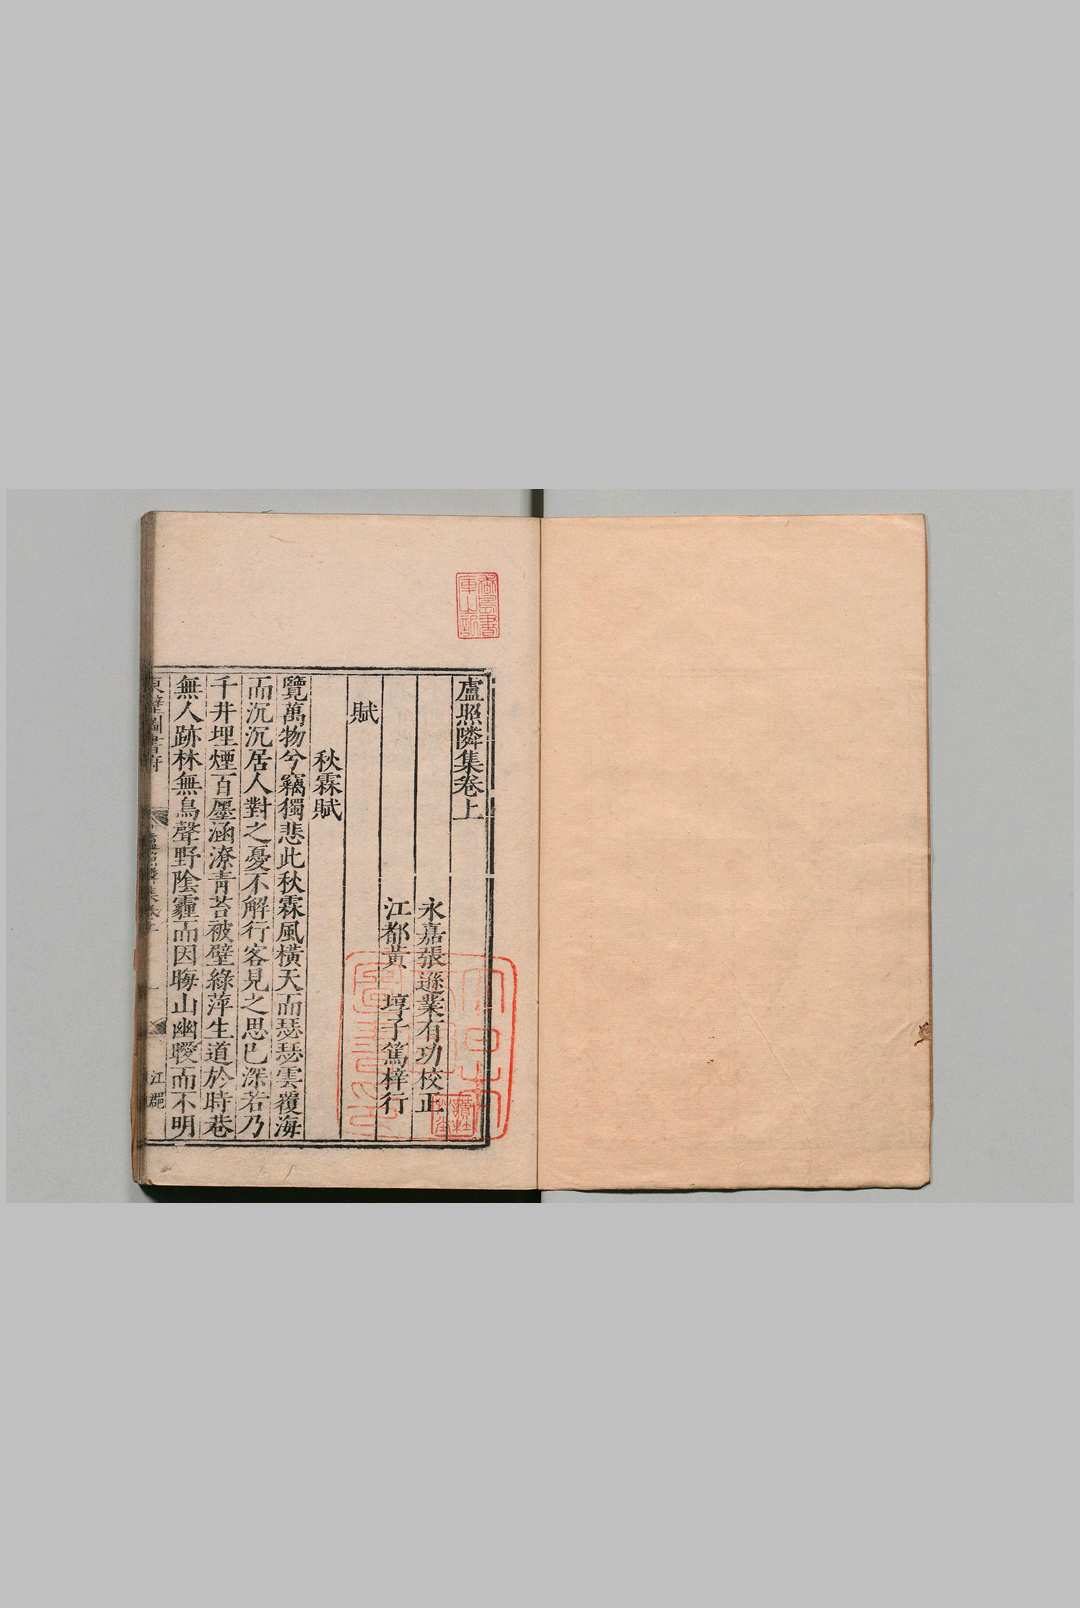 盧照隣集卷上
永嘉張遜業有功校正
江都黃　㙋子篤梓行
賦
秋霖賦
覽萬物兮竊獨悲此秋霖風橫天而瑟瑟雲覆海
而沉沉居人對之憂不解行客見之思已深若乃
千井埋煙百廛涵潦青苔被壁綠萍生道於時巷
無人跡林無鳥聲野陰霾而因晦山幽曖而不明
東壁圖書府
江郡